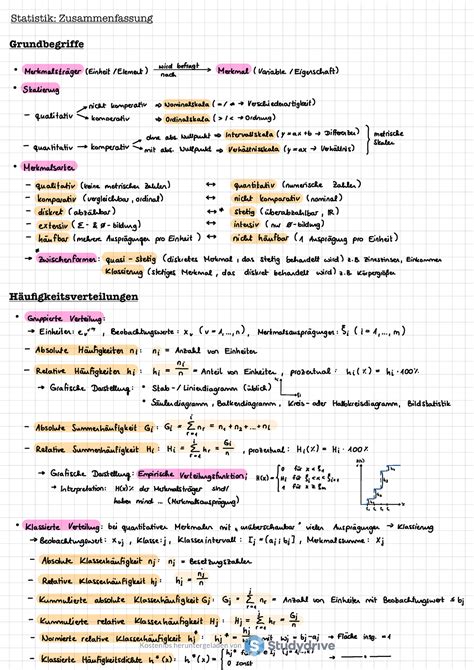 Statistik: Zusammenfassung
Grundbegriffe
• Merkmalsträger (Einheit / Element) wird befragt nach → Merkmal (Variable / Eigenschaft)
• Skalierung
- qualitativ
nicht komparativ ⇒ Nominalskala (= / ≠ → Verschiedenartigkeit)
komparativ ⇒ Ordinalskala (> / < → Ordnung)
- quantitativ → komparativ
ohne abs. Nullpunkt ⇒ Intervallskala (y = ax + b → Differenz)
mit abs. Nullpunkt ⇒ Verhältnisskala (y = ax → Verhältnis)
metrische Skalen
• Merkmalsarten
- qualitativ (keine metrischen Zahlen) ↔ quantitativ (numerische Zahlen)
- komparativ (vergleichbar, ordinal) ↔ nicht komparativ (nominal)
- diskret (abzählbar) ↔* stetig (überabzählbar, ℝ)
- extensiv (Σ- & Ø-bildung) ↔ intensiv (nur Ø-bildung)
- häufbar (mehrere Ausprägungen pro Einheit) ↔ nicht häufbar (1 Ausprägung pro Einheit)
* Zwischenformen: quasi-stetig (diskretes Merkmal, das stetig behandelt wird) z.B. Zinsen, Einkommen
Klassierung (stetiges Merkmal, das diskret behandelt wird) z.B. Körpergröße
Häufigkeitsverteilungen
• Gruppierte Verteilung:
→ Einheiten: , Beobachtungswerte: xᵥ (v = 1,...,n), Merkmalsausprägungen: ξᵢ (i = 1,...,m)
- Absolute Häufigkeiten nᵢ: nᵢ = Anzahl von Einheiten
- Relative Häufigkeiten hᵢ: hᵢ = nᵢ/n = Anteil von Einheiten, prozentual: hᵢ(%) = hᵢ · 100%
→ Grafische Darstellung: • Stab- / Liniendiagramm (üblich)
• Säulendiagramm, Balkendiagramm, Kreis- oder Halbkreisdiagramm, Bildstatistik
- Absolute Summenhäufigkeit Gᵢ: Gᵢ = Σ nᵣ = n₁ + n₂ + ... + nᵢ
- Relative Summenhäufigkeit Hᵢ: Hᵢ = Σ hᵣ = Gᵢ/n, prozentual: Hᵢ(%) = Hᵢ · 100%
→ Grafische Darstellung: Empirische Verteilungsfunktion: H(x) =
→ Interpretation: H(x)% der Merkmalsträger sind/haben mind ... (Merkmalsausprägung)
• Klassierte Verteilung: bei quantitativen Merkmalen mit „unüberschaubar“ vielen Ausprägungen → Klassierung
→ Beobachtungswert: xᵥⱼ, Klasse: j, Klassenintervall: Iⱼ = (aⱼ; bⱼ], Merkmalssumme: Xⱼ
- Absolute Klassenhäufigkeit nⱼ: nⱼ = Besetzungszahlen
- Relative Klassenhäufigkeit hⱼ: hⱼ = nⱼ/n
- Kummulierte absolute Klassenhäufigkeit Gⱼ: Gⱼ = Σ nᵣ = Anzahl von Einheiten mit Beobachtungswert ≤ bⱼ
- Kummulierte relative Klassenhäufigkeit Hⱼ: Hⱼ = Σ hᵣ = Gⱼ/n
- Normierte relative Klassenhäufigkeit hⱼ*: hⱼ* = mit wⱼ = bⱼ - aⱼ → Fläche insg. = 1
Kostenlos heruntergeladen von Studydrive
- Klassierte Häufigkeitsdichte h*(x): h*(x) = 0 sonst